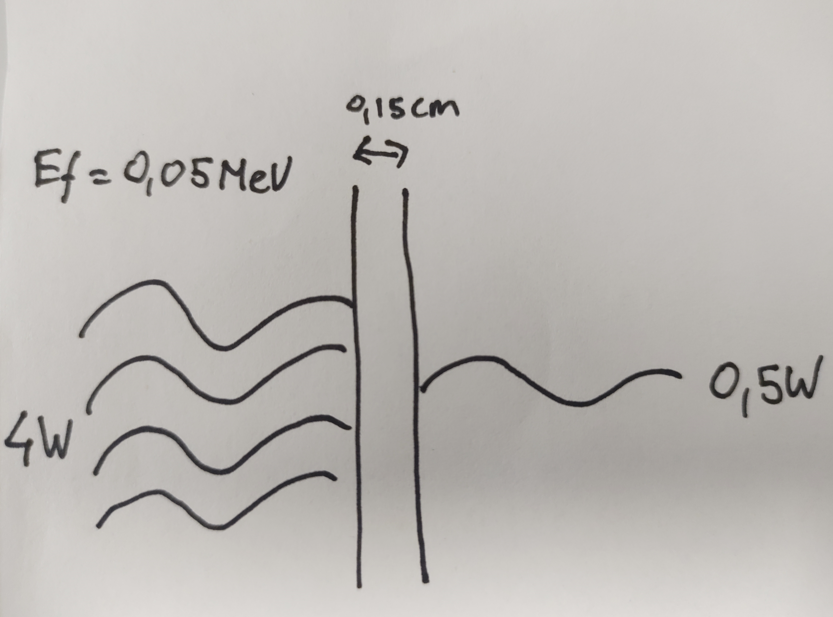 0,15cm
Ef = 0,05MeV
4W
0,5W